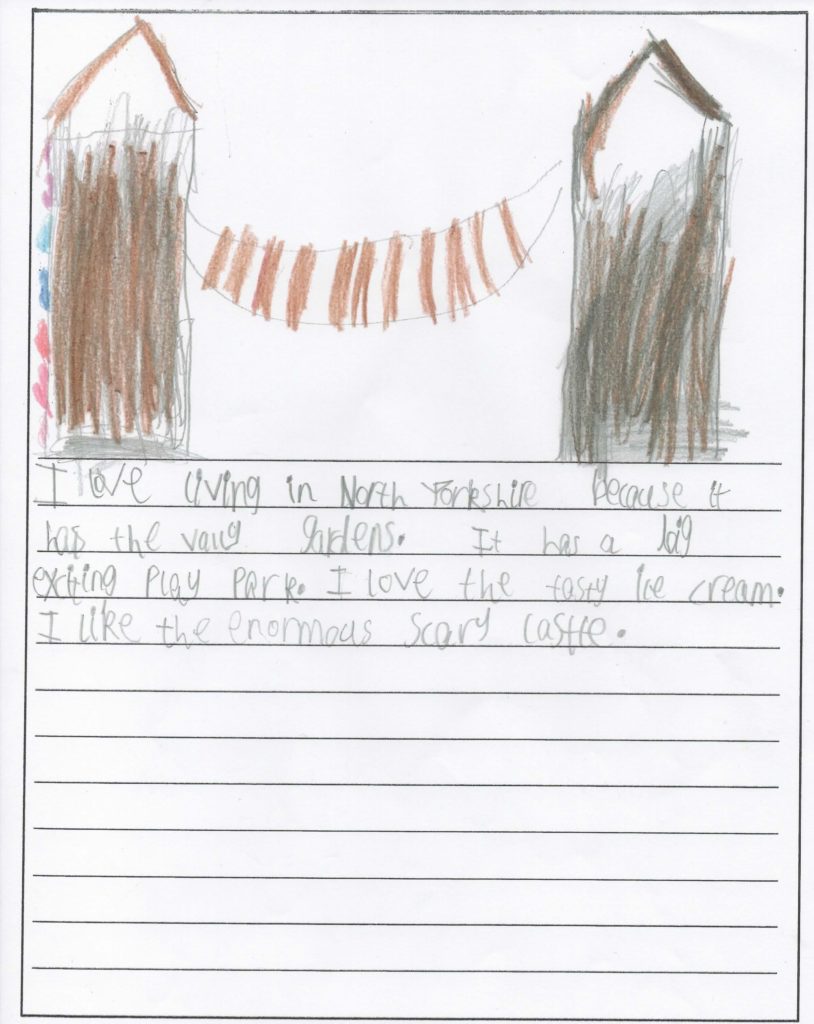 I love living in North Yorkshire because it
has the vally gardens. It has a big
exiting Play Park. I love the tasty ice cream.
I like the enormous scary castle.